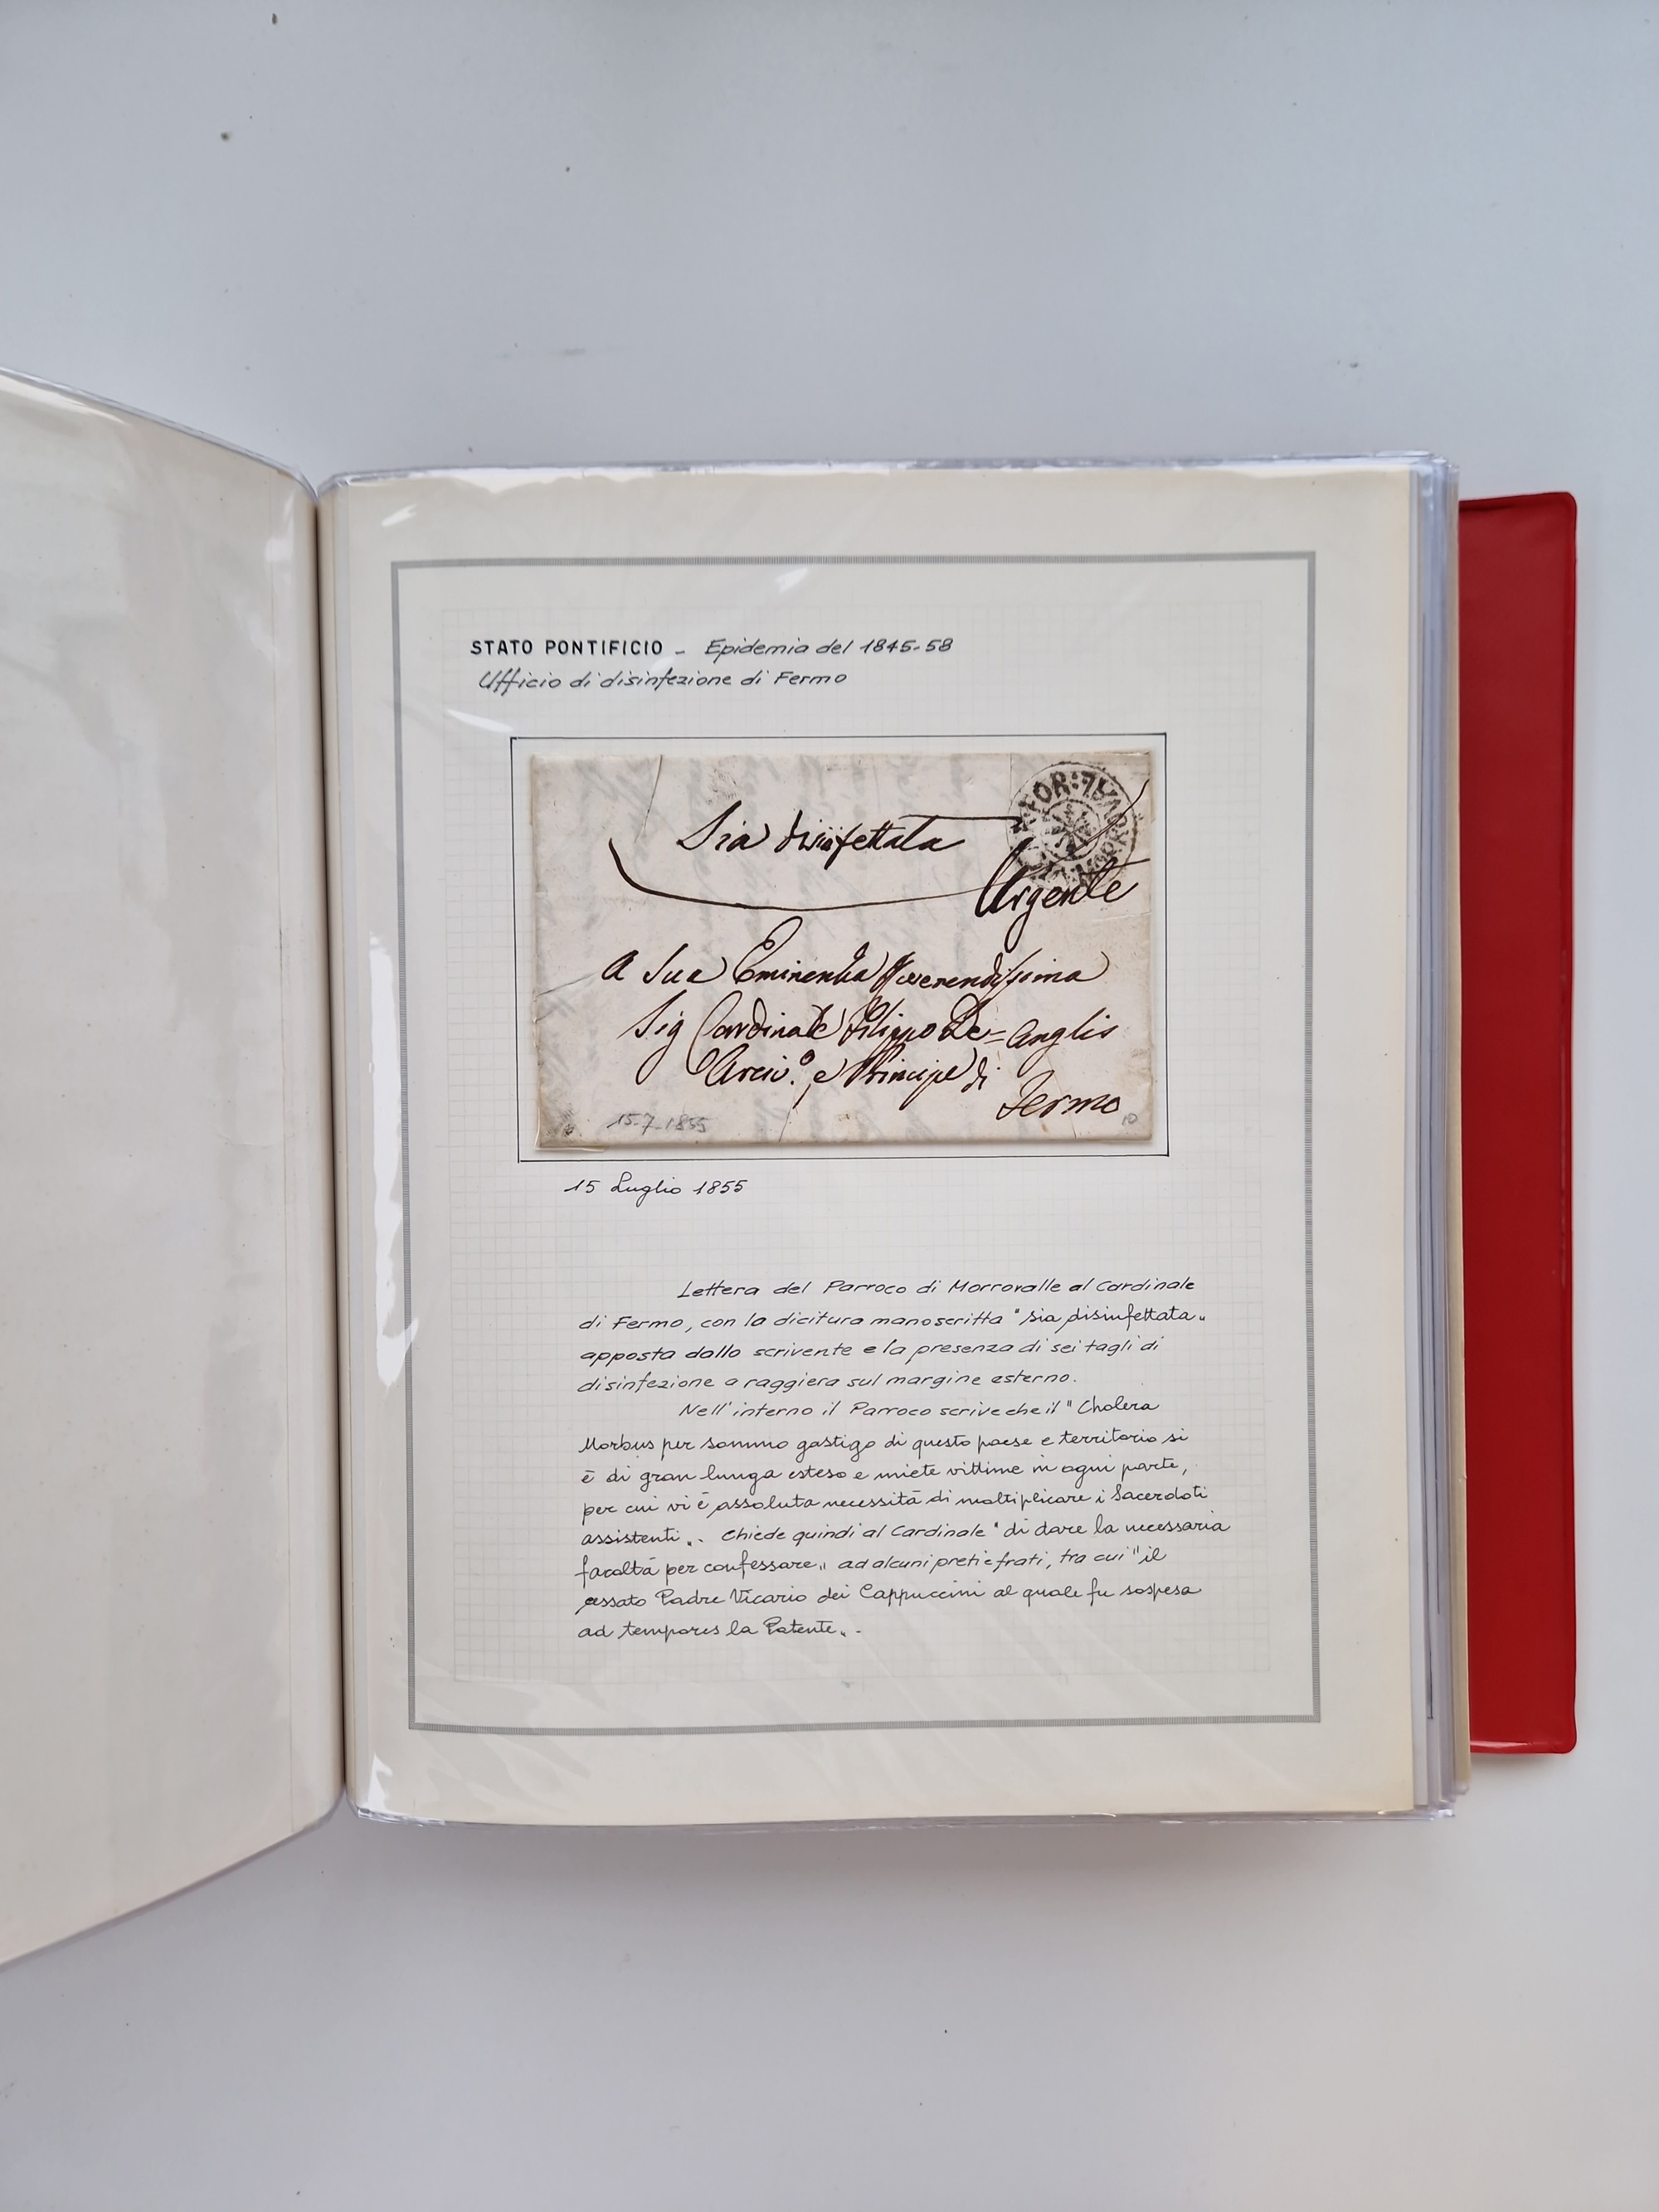 STATO PONTIFICIO - Epidemia del 1845-58
Ufficio di disinfezione di Fermo
Sia disinfettata
Urgente
A Sua Eminenza Reverendissima
Sig Cardinale Filippo De=Anglis
Arciv.º e Principe di
Fermo
15-7-1855
15 Luglio 1855
Lettera del Parroco di Morrovalle al Cardinale
di Fermo, con la dicitura manoscritta "sia disinfettata„
apposta dallo scrivente e la presenza di sei tagli di
disinfezione a raggiera sul margine esterno.
Nell'interno il Parroco scrive che il "Cholera
Morbus per sommo gastigo di questo paese e territorio si
è di gran lunga esteso e miete vittime in ogni parte,
per cui vi è assoluta necessità di moltiplicare i Sacerdoti
assistenti„. Chiede quindi al Cardinale "di dare la necessaria
facoltà per confessare„ ad alcuni preti e frati, tra cui "il
cessato Padre Vicario dei Cappuccini al quale fu sospesa
ad tempores la Patente„.